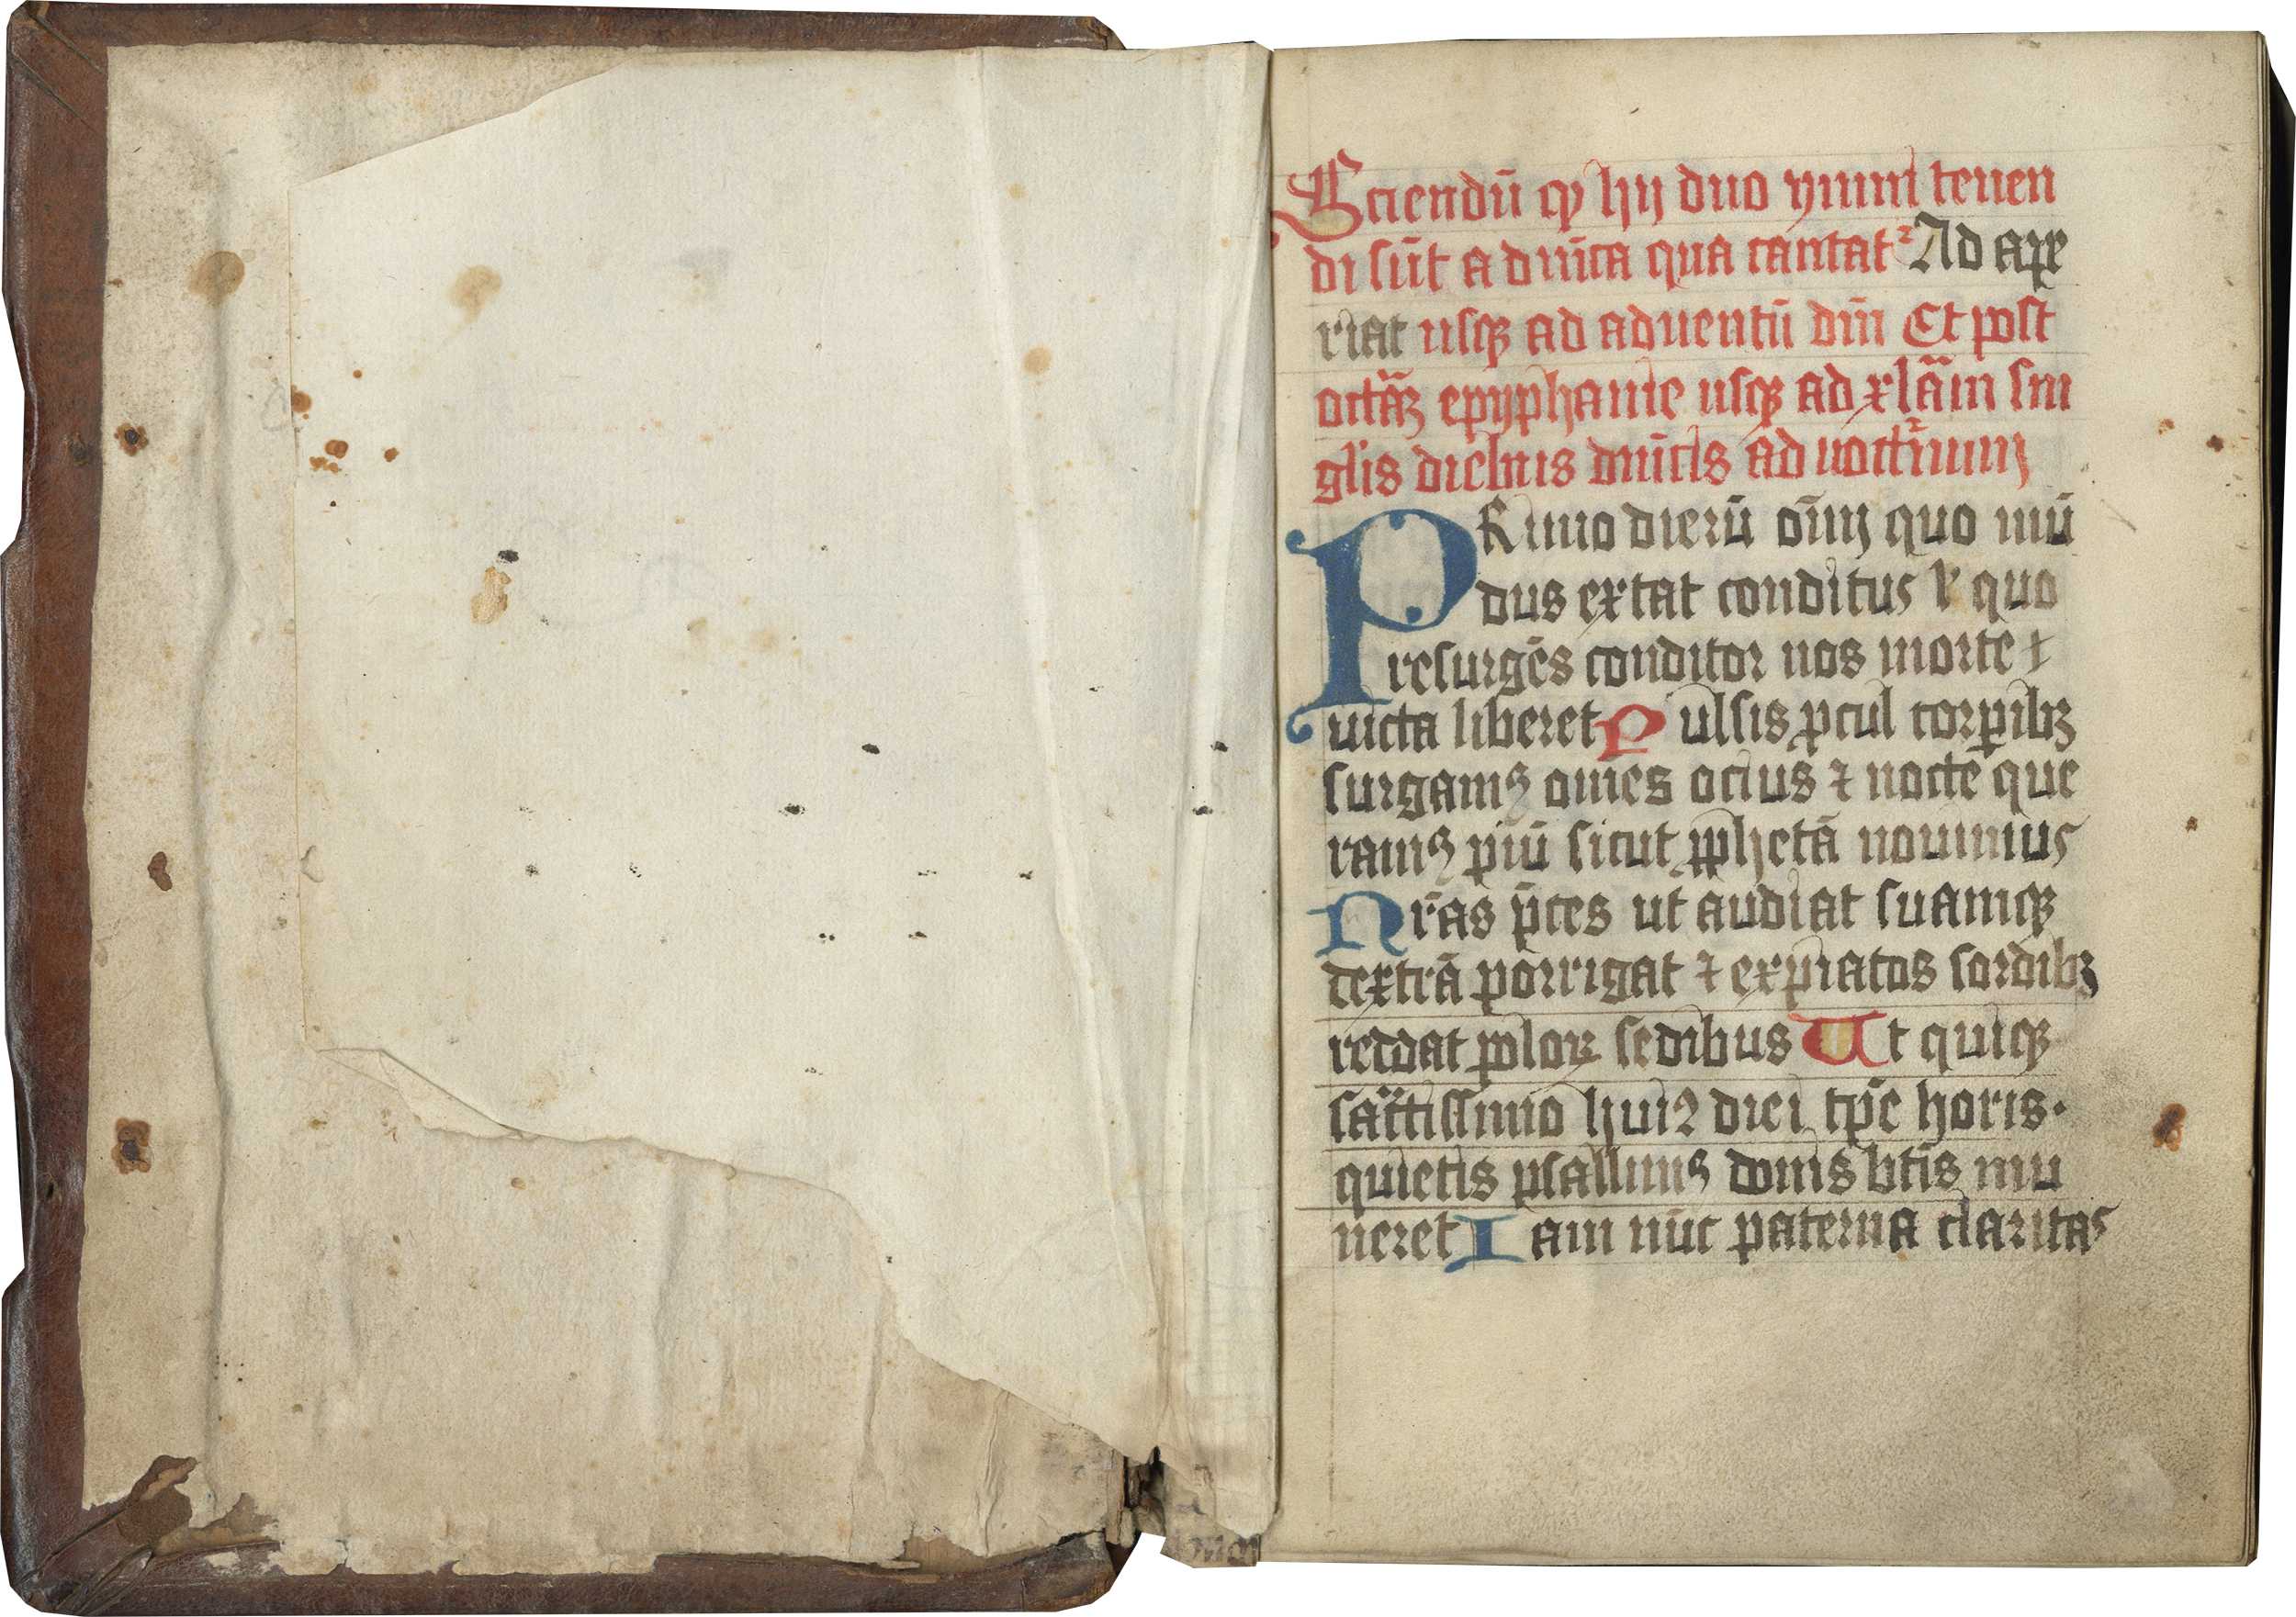 Sciendū qꝫ hij duo ymni tenen
di sūt a dnīca qua cantatᷣ Ad ape
riat usqꝫ ad aduentū dnī Et post
octāꝫ epyphanie usqꝫ ad xlām sin
glis diebus dnīcis ad nocťnum
PRimo dierū oīm quo mū
dus extat conditus ꝉ quo
resurgēs conditor nos morte ⁊
uicta liberet Pulsis ꝓcul torꝑibꝫ
surgamꝰ om̄es ocius ⁊ nocte que
ramꝰ piū sicut ꝓphetā nouimus
Nrās p̄ces ut audiat suamqꝫ
dextrā porrigat ⁊ expiatos sordibꝫ
reddat poloꝝ sedibus Ut quiqꝫ
sac̄tissimo huiꝰ diei tꝑe horis.
quietis psallimꝰ donis btīs mu
neret Iam nūc paterna claritas